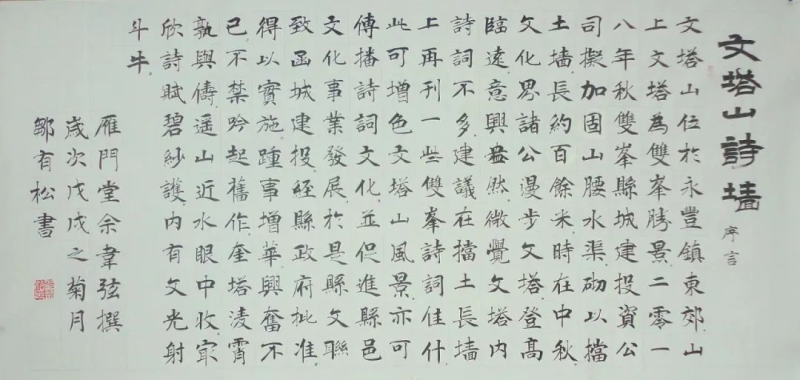 文塔山詩墙
序言
文塔山位於永豐鎮東郊山
上文塔為雙峯勝景二零一
八年秋雙峯縣城建投資公
司擬加固山腰水渠砌以擋
土墙長約百餘米時在中秋
文化界諸公漫步文塔登高
臨遠意興盎然微覺文塔内
詩詞不多建議在擋土長墙
上再刊一些雙峯詩詞佳什
此可增色文塔山風景亦可
傳播詩詞文化並促進縣邑
文化事業發展於是縣文聯
致函城建投經縣政府批准
得以實施踵事增華興奮不
已不禁吟起舊作奎塔凌霄
孰與儔遥山近水眼中收家
欣詩賦碧紗護内有文光射
斗牛
雁門堂余韋弦撰
歲次戊戌之菊月
鄒有松書